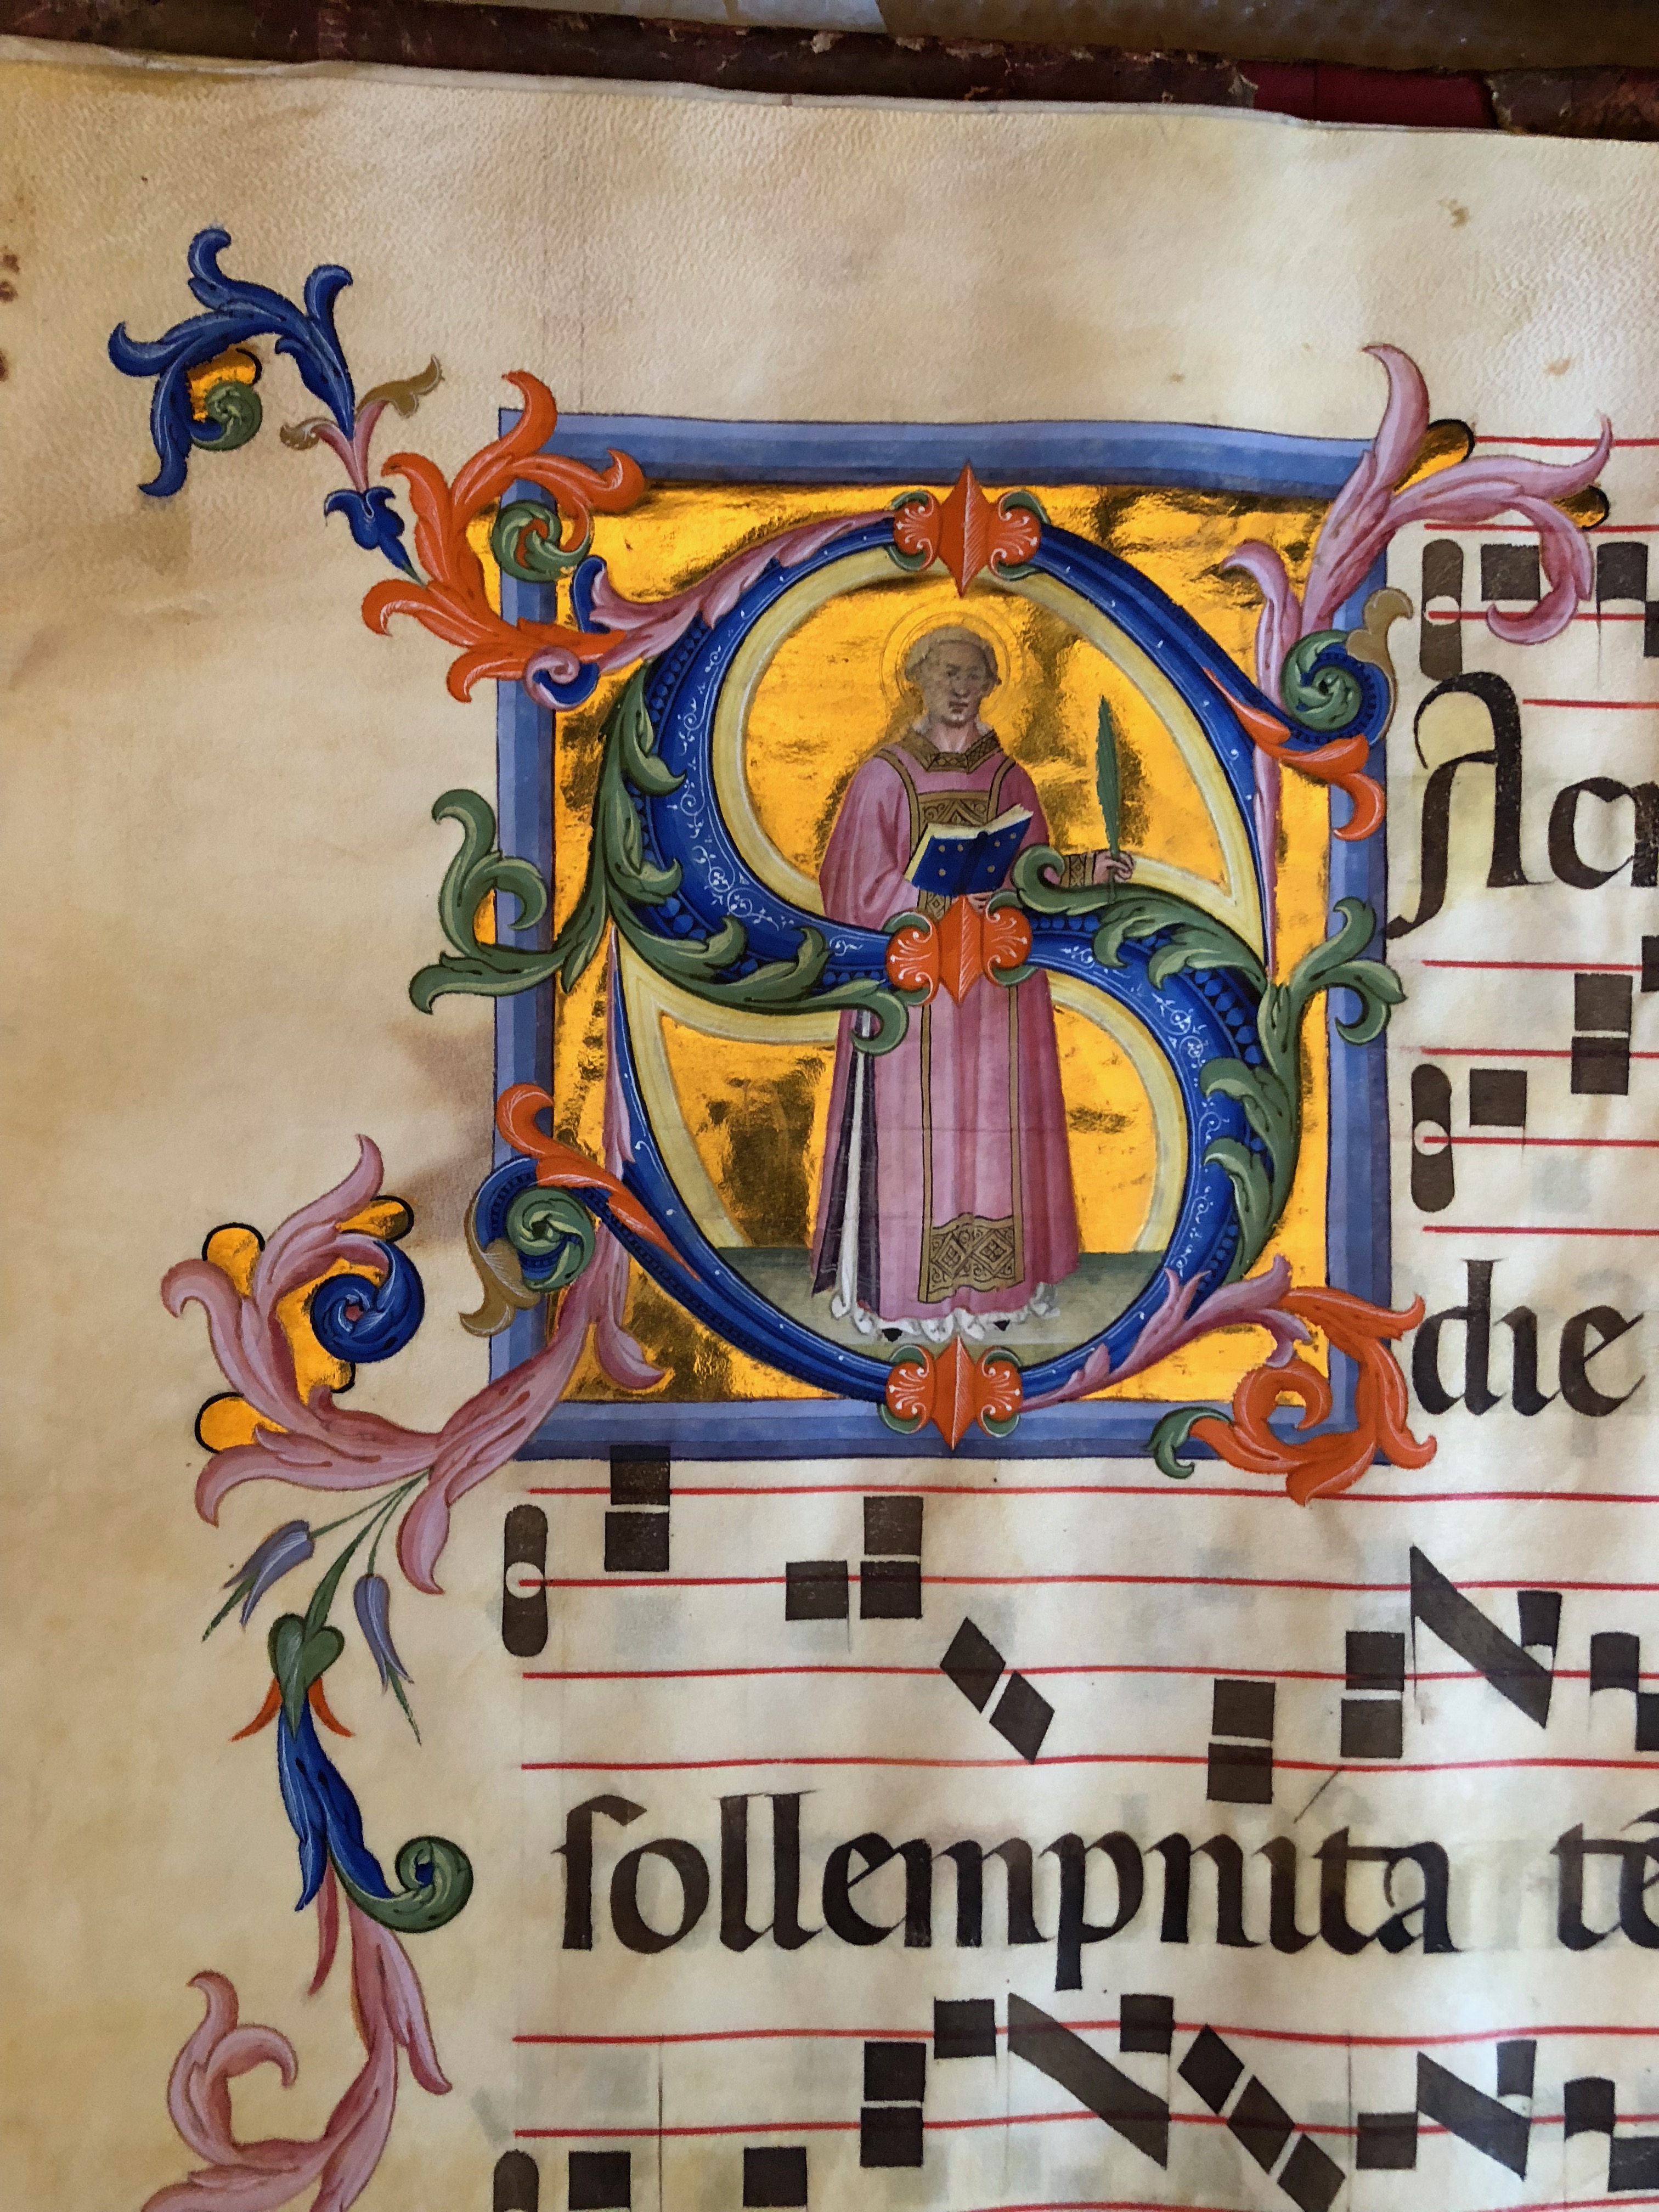 S Aa
die
sollempnita tē